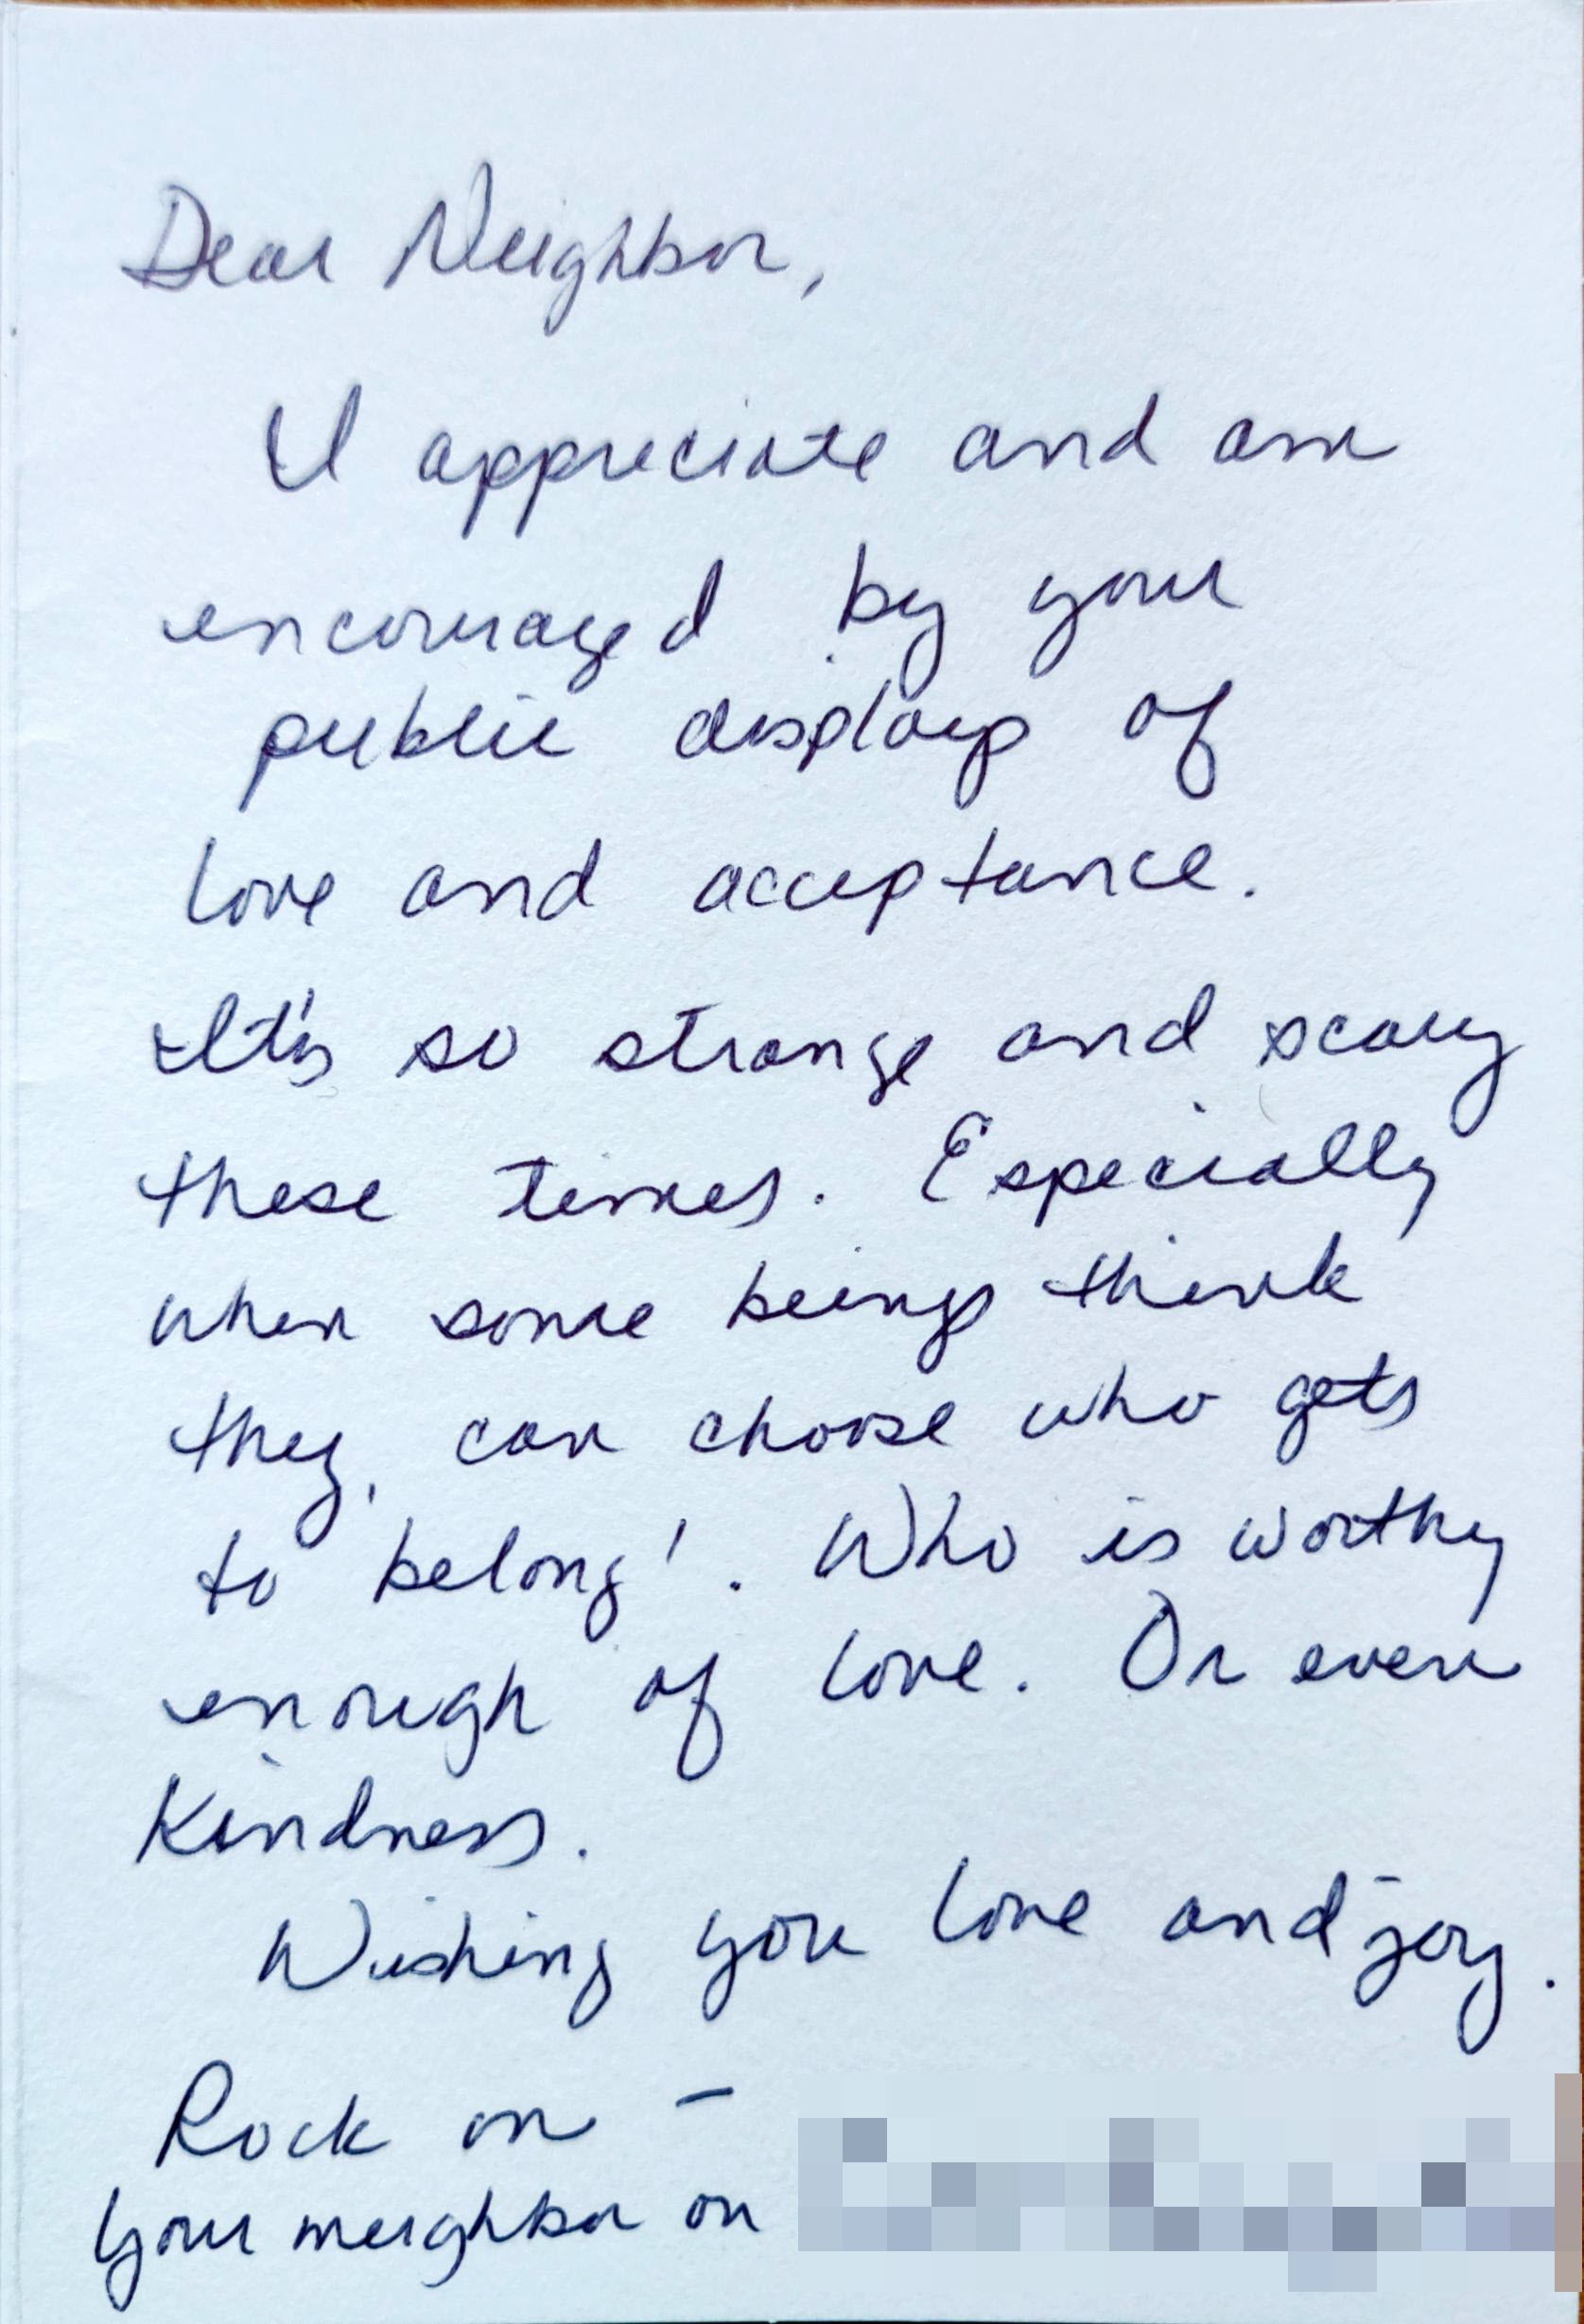 Dear Neighbor,
I appreciate and am
encouraged by your
public displays of
love and acceptance.
It's so strange and scary
these times. Especially
when some beings think
they can choose who gets
to 'belong'. Who is worthy
enough of love. Or even
Kindness.
Wishing you love and joy.
Rock on –
Your neighbor on